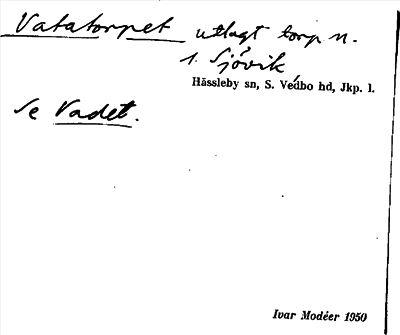 Vatatorpet utlagt torp n.
1. Sjövik
Hässleby sn, S. Vedbo hd, Jkp. l.
Se Vadet.
Ivar Modéer 1950